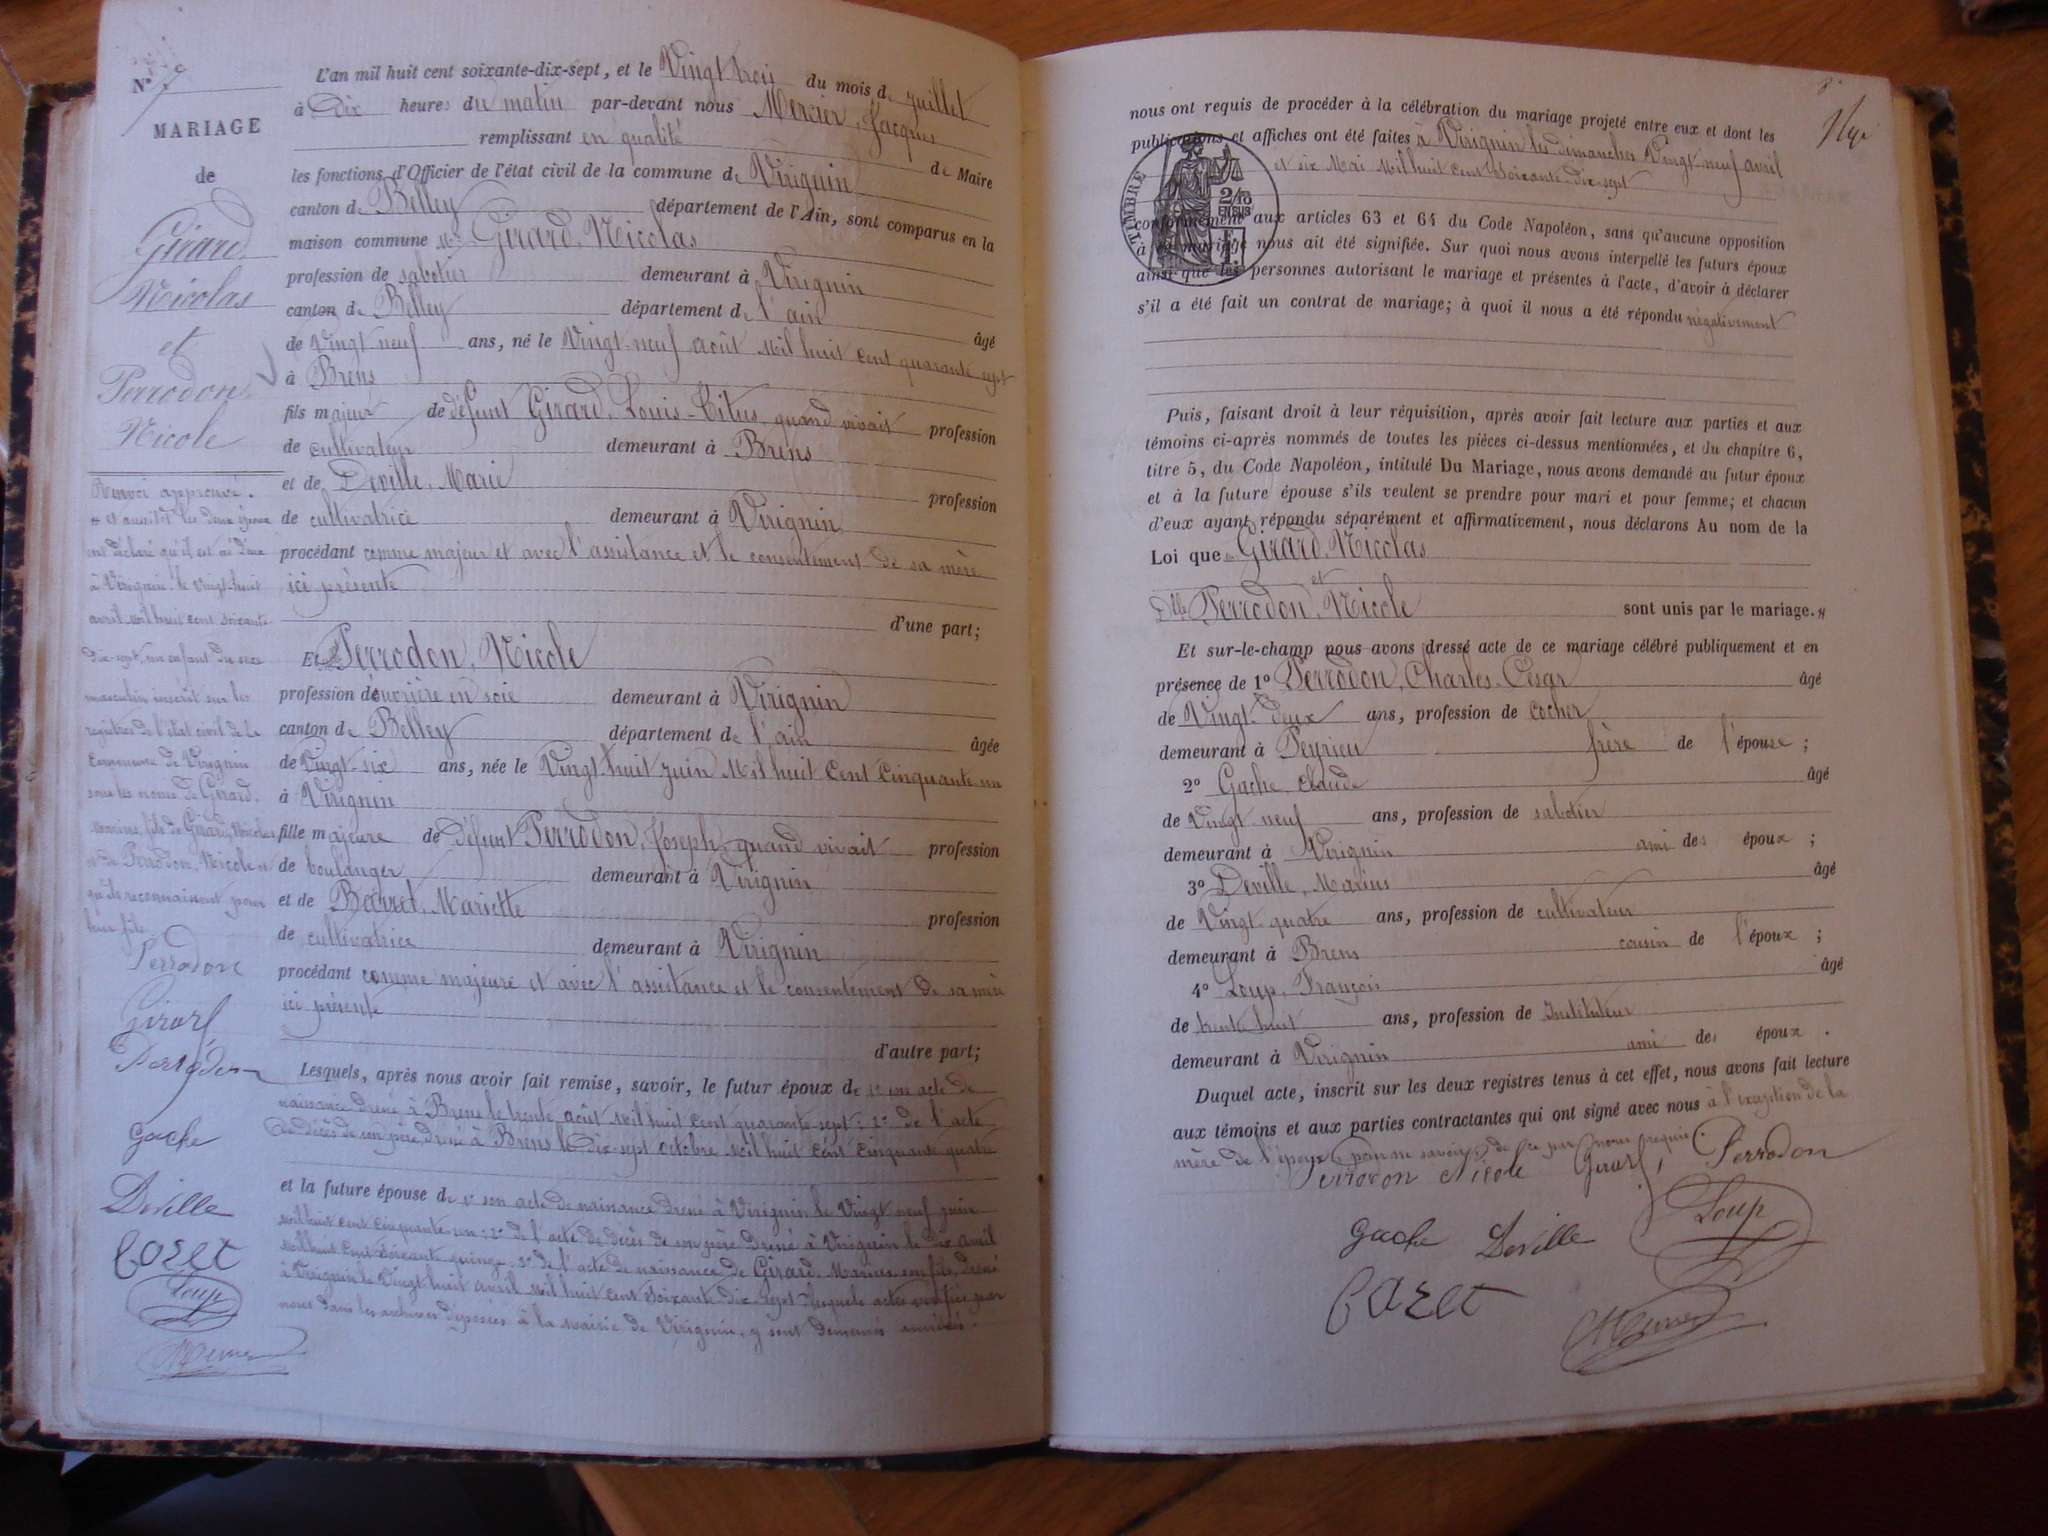 N° 7
MARIAGE
de
Girard
Nicolas
et
Perrodon
Nicole
Renvoi approuvé.
et aussitôt les deux époux
ont déclaré qu'il est né d'eux
à Virignin le vingt-huit
avril mil huit cent soixante
dix-sept, un enfant du sexe
masculin inscrit sur les
registres de l'état civil de la
commune de Virignin
sous les noms de Girard,
Marius, fils de Girard, Nicolas
et de Perrodon, Nicole et
qu'ils reconnaissent pour
leur fils.
Perrodon
Girard
Perrodon
Gache
Deville
Cozet
Loup
Mercier
L'an mil huit cent soixante-dix-sept, et le Vingt trois du mois de juillet
à Dix heures du matin par-devant nous Mercier, Jacques
remplissant en qualité
les fonctions d'Officier de l'état civil de la commune de Virignin de Maire
canton de Belley département de l'Ain, sont comparus en la
maison commune Mr Girard, Nicolas
profession de sabotier demeurant à Virignin
canton de Belley département de l'ain
âgé
de Vingt neuf ans, né le Vingt-neuf août Mil huit cent quarante sept
à Brens
fils majeur de défunt Girard, Louis-Titus, quand vivait profession
de cultivateur demeurant à Brens
et de Deville, Marie profession
de cultivatrice demeurant à Virignin
procédant comme majeur et avec l'assistance et le consentement de sa mère
ici présente
d'une part;
Et Perrodon, Nicole
profession d'ouvrière en soie demeurant à Virignin
canton de Belley département de l'ain âgée
de Vingt-six ans, née le Vingt huit juin Mil huit Cent Cinquante un
à Virignin
fille majeure de défunt Perrodon, Joseph, quand vivait profession
de boulanger demeurant à Virignin
et de Mariette profession
de cultivatrice demeurant à Virignin
procédant comme majeure et avec l'assistance et le consentement de sa mère
ici présente
d'autre part;
Lesquels, après nous avoir fait remise, savoir, le futur époux de 1° son acte de
naissance dressé à Brens le trente août Mil huit Cent quarante-sept; 2° de l'acte
de décès de son père dressé à Brens le Dix-sept octobre Mil huit Cent Cinquante quatre
et la future épouse de 1° son acte de naissance dressé à Virignin le Vingt neuf juin
Mil huit cent cinquante un; 2° de l'acte de décès de son père dressé à Virignin le dix avril
Mil huit Cent Soixante quinze; 3° de l'acte de naissance de Girard, Marius, son fils, dressé
à Virignin le Vingt-huit avril Mil huit Cent Soixante-dix-sept lesquels actes vérifiés par
nous dans les archives déposées à la mairie de Virignin, y sont demeurés annexés.
nous ont requis de procéder à la célébration du mariage projeté entre eux et dont les
publications et affiches ont été faites à Virignin les dimanches Vingt-neuf avril
et six Mai Mil huit Cent Soixante-dix-sept
TIMBRE
2/10
EN SUS
conformément aux articles 63 et 64 du Code Napoléon, sans qu'aucune opposition
à ce mariage nous ait été signifiée. Sur quoi nous avons interpellé les futurs époux
ainsi que les personnes autorisant le mariage et présentes à l'acte, d'avoir à déclarer
s'il a été fait un contrat de mariage; à quoi il nous a été répondu négativement
Puis, faisant droit à leur réquisition, après avoir fait lecture aux parties et aux
témoins ci-après nommés de toutes les pièces ci-dessus mentionnées, et du chapitre 6,
titre 5, du Code Napoléon, intitulé Du Mariage, nous avons demandé au futur époux
et à la future épouse s'ils veulent se prendre pour mari et pour femme; et chacun
d'eux ayant répondu séparément et affirmativement, nous déclarons Au nom de la
Loi que Girard, Nicolas
et
Dlle Perrodon, Nicole sont unis par le mariage.
Et sur-le-champ nous avons dressé acte de ce mariage célébré publiquement et en
présence de 1° Perrodon, Charles-César âgé
de Vingt-deux ans, profession de cocher
demeurant à Peyrieu frère de l'épouse;
2° Gache, Claude âgé
de Vingt neuf ans, profession de sabotier
demeurant à Virignin ami des époux;
3° Deville, Marius âgé
de Vingt-quatre ans, profession de cultivateur
demeurant à Brens cousin de l'époux;
4° Loup, François âgé
de trente huit ans, profession de Instituteur
demeurant à Virignin ami des époux.
Duquel acte, inscrit sur les deux registres tenus à cet effet, nous avons fait lecture
aux témoins et aux parties contractantes qui ont signé avec nous à l'exception de la
mère de l'époux pour ne savoir, de ce par nous requise.
Perrodon Nicole Girard Perrodon
Gache Deville Loup
Cozet
Mercier